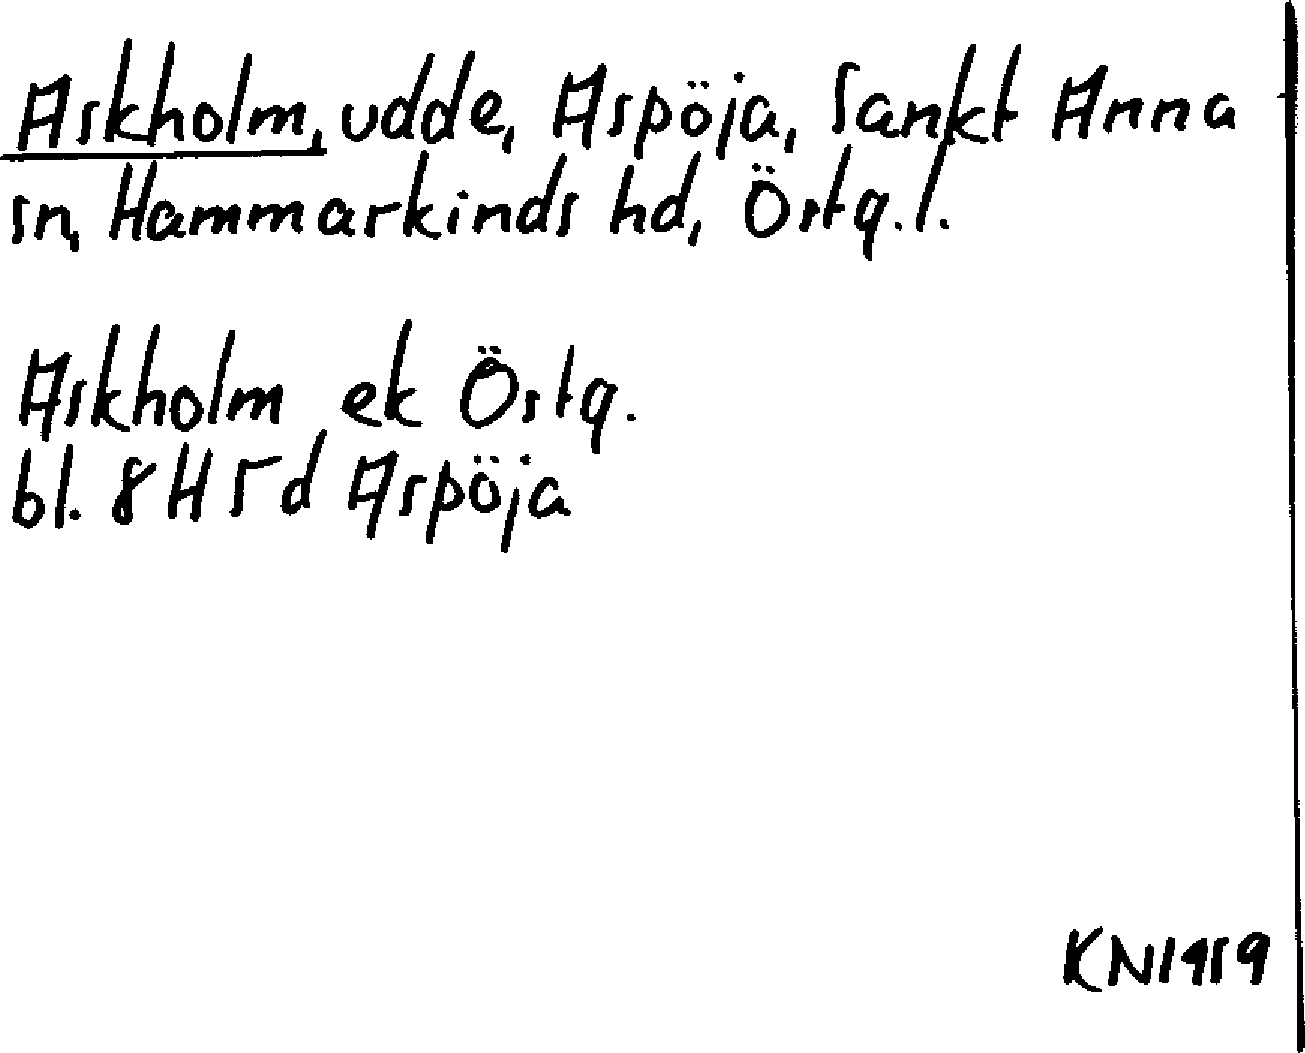 Askholm, udde, Aspöja, Sankt Anna
sn, Hammarkinds hd, Östg. l.
Askholm ek Östg.
bl. 8H 5d Aspöja
KN1959